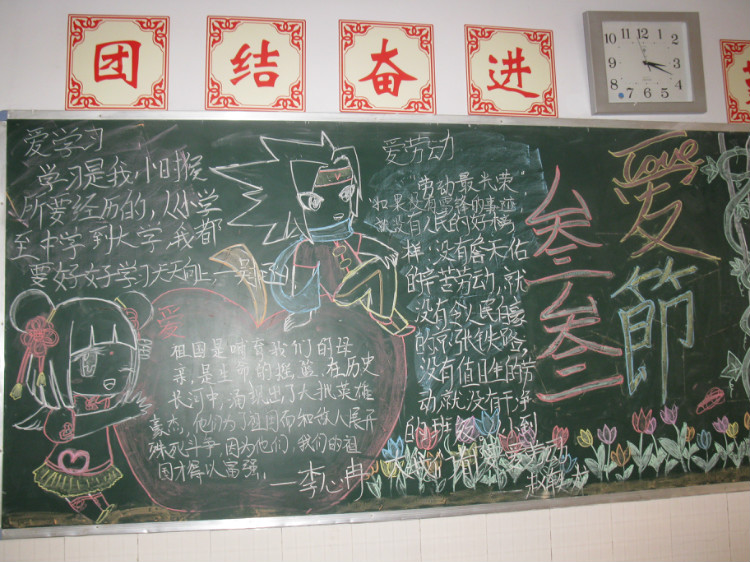 团 结 奋 进
12 1 2 3 4 5 6 7 8 9 10 11
爱学习
学习是我小时候
所要经历的,从小学
至中学到大学,我都
要好好学习天天向上
爱
祖国是哺育我们的母
亲,是生命的摇篮,在历史
长河中,涌现出了大批英雄
豪杰,他们为了祖国而和敌人展开
殊死斗争,因为他们,我们的祖
国才得以富强。
——李心冉
爱劳动
"劳动最光荣"
如果没有雷锋的事迹
就没有人民的好榜
样,没有詹天佑
的辛苦劳动,就
没有令人民自豪
的京张铁路,
没有值日生的劳
动,就没有干净
的班级,小到
爱劳动
叁叁
爱節
Love